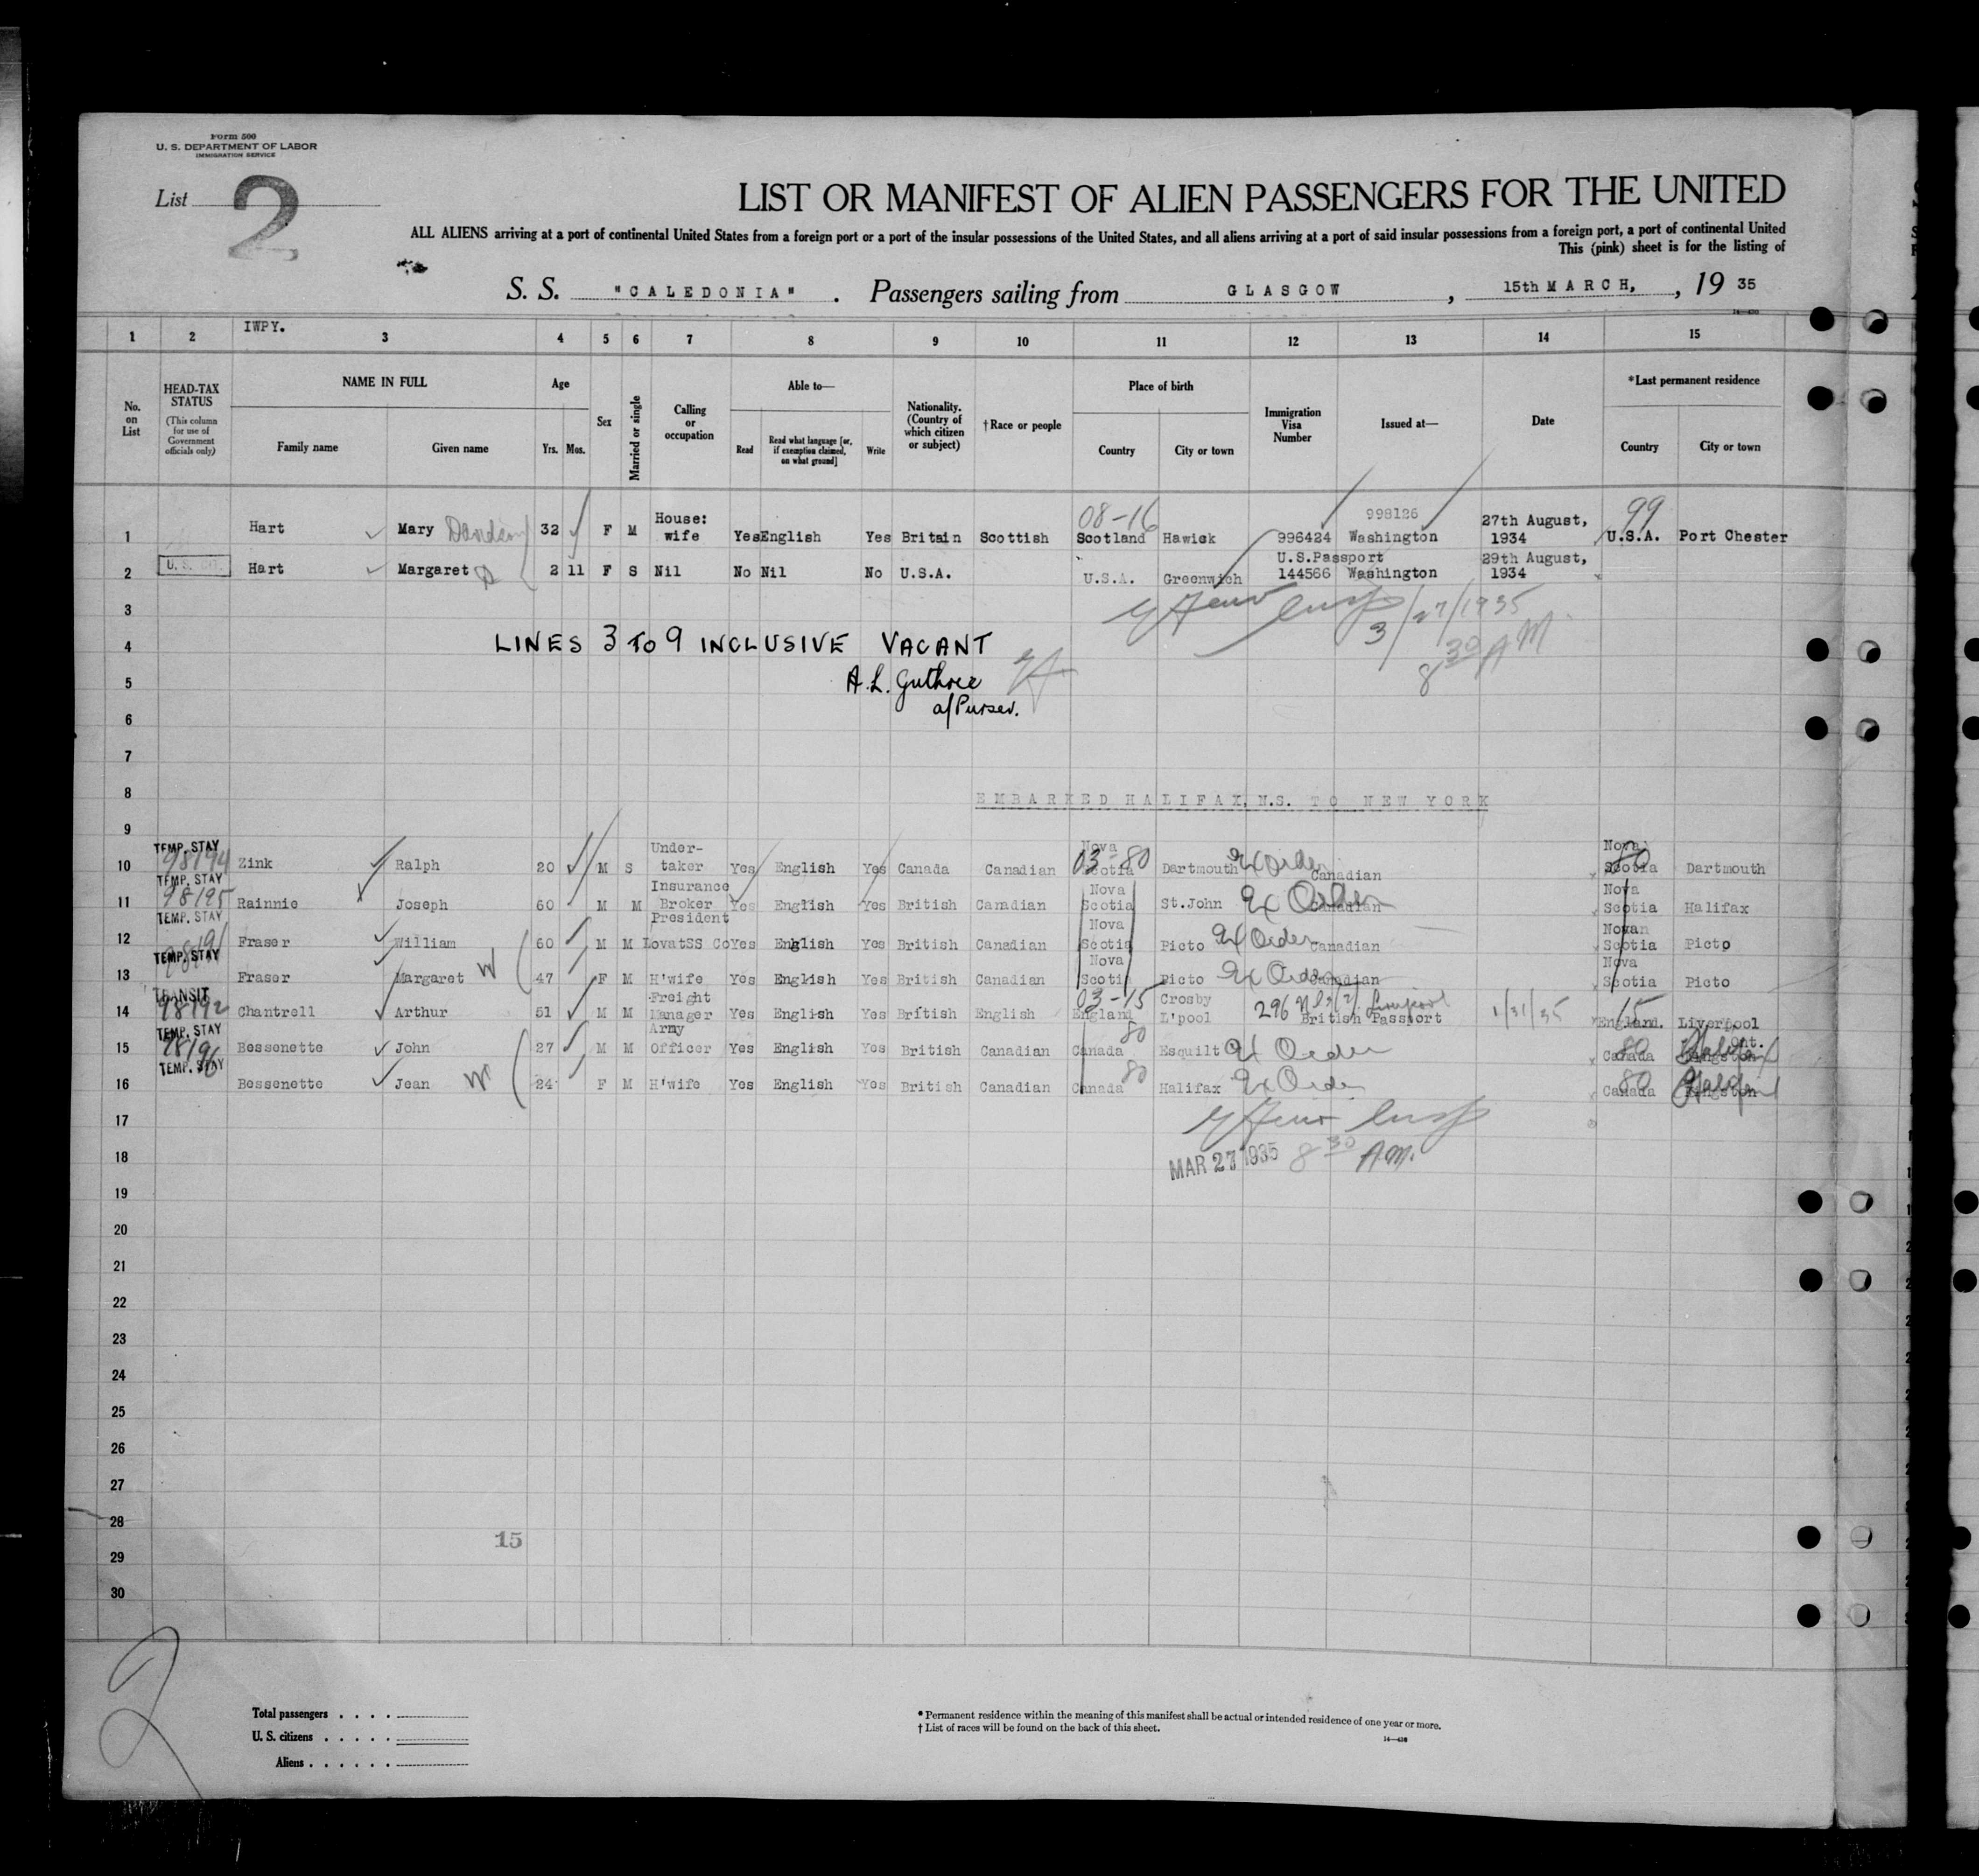 Form 500
U. S. DEPARTMENT OF LABOR
IMMIGRATION SERVICE
List 2
LIST OR MANIFEST OF ALIEN PASSENGERS FOR THE UNITED
ALL ALIENS arriving at a port of continental United States from a foreign port or a port of the insular possessions of the United States, and all aliens arriving at a port of said insular possessions from a foreign port, a port of continental United
This (pink) sheet is for the listing of
S. S. "CALEDONIA" . Passengers sailing from GLASGOW , 15th MARCH, , 19 35
14—430
IWPY.
1 2 3 4 5 6 7 8 9 10 11 12 13 14 15
No. on List
HEAD-TAX STATUS (This column for use of Government officials only)
NAME IN FULL
Family name Given name
Age Yrs. Mos.
Sex
Married or single
Calling or occupation
Able to—
Read Read what language [or, if exemption claimed, on what ground] Write
Nationality. (Country of which citizen or subject)
†Race or people
Place of birth
Country City or town
Immigration Visa Number
Issued at—
Date
*Last permanent residence
Country City or town
1 Hart Mary Davidson 32 F M House: wife Yes English Yes Britain Scottish 08-16 Scotland Hawick 996424 998126 Washington 27th August, 1934 99 U.S.A. Port Chester
2 U. S. CIT. Hart Margaret D 2 11 F S Nil No Nil No U.S.A. U.S.A. Greenwich U.S.Passport 144566 Washington 29th August, 1934
3 3/27/1935
4 LINES 3 TO 9 INCLUSIVE VACANT 8 30 AM
5 A. L. Guthrie
6 a/Purser.
7
8 EMBARKED HALIFAX, N.S. TO NEW YORK
9
10 TEMP. STAY 98194 Zink Ralph 20 M S Under-taker Yes English Yes Canada Canadian Nova Scotia 03-80 Dartmouth Ex Order Canadian Nova Scotia 80 Dartmouth
11 TEMP. STAY 98195 Rainnie Joseph 60 M M Insurance Broker Yes English Yes British Canadian Nova Scotia St.John Ex Order Canadian Nova Scotia Halifax
12 TEMP. STAY Fraser William 60 M M President LovatSS Co Yes English Yes British Canadian Nova Scotia Picto Ex Order Canadian Novan Scotia Picto
13 TEMP. STAY Fraser Margaret W 47 F M H'wife Yes English Yes British Canadian Nova Scotia Picto Ex Order Canadian Nova Scotia Picto
14 TRANSIT 98192 Chantrell Arthur 51 M M Freight Manager Yes English Yes British English 03-15 England Crosby L'pool 296 Liverpool British Passport 1/31/35 15 England. Liverpool
15 TEMP. STAY Bessenette John 27 M M Army Officer Yes English Yes British Canadian Canada 80 Esquilt Ex Order Canada 80 Kingston Ont. Halifax
16 TEMP. STAY Bessenette Jean W 24 F M H'wife Yes English Yes British Canadian Canada 80 Halifax Ex Order Canada 80 Kingston Halifax
17
18 MAR 27 1935 8 30 A.M.
19
20
21
22
23
24
25
26
27
28
15
29
30
2
Total passengers . . . .
U. S. citizens . . . . .
Aliens . . . . . .
* Permanent residence within the meaning of this manifest shall be actual or intended residence of one year or more.
† List of races will be found on the back of this sheet.
14—430